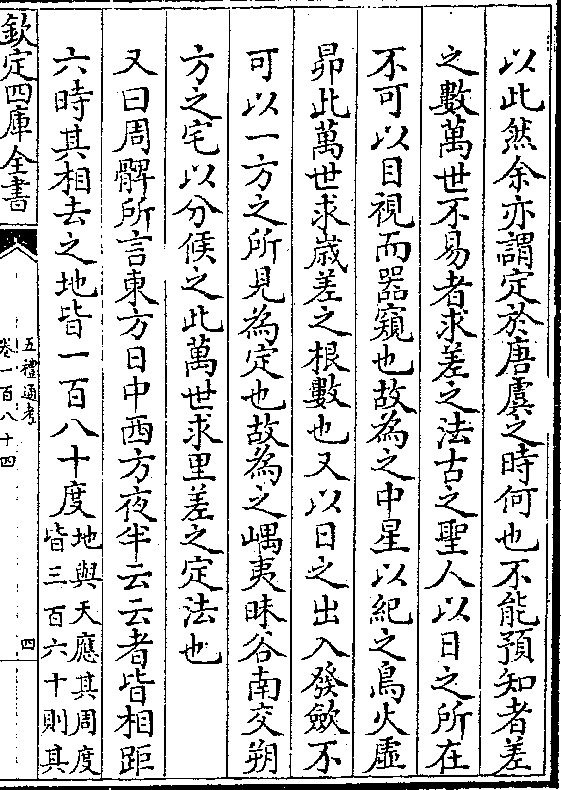 以此然余亦謂定於唐虞之時何也不能預知者差
之數萬世不易者求差之法古之聖人以日之所在
不可以目視而器窺也故為之中星以紀之鳥火虛
昴此萬世求嵗差之根數也又以日之出入發斂不
可以一方之所見為定也故為之嵎夷昧谷南交朔
方之宅以分候之此萬世求里差之定法也
又曰周髀所言東方日中西方夜半云云者皆相距
六時其相去之地皆一百八十度地與天應其周度
皆三百六十則其
欽定四庫全書
五禮通考
卷一百八十四
四